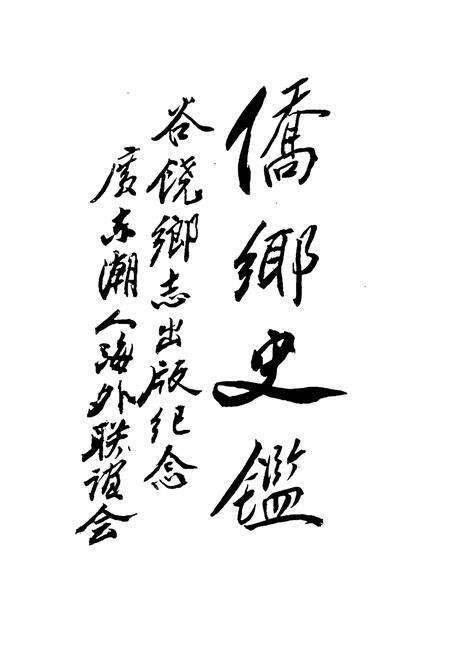 僑鄉史鑑
谷饶鄉志出版纪念
廣东潮人海外联谊会